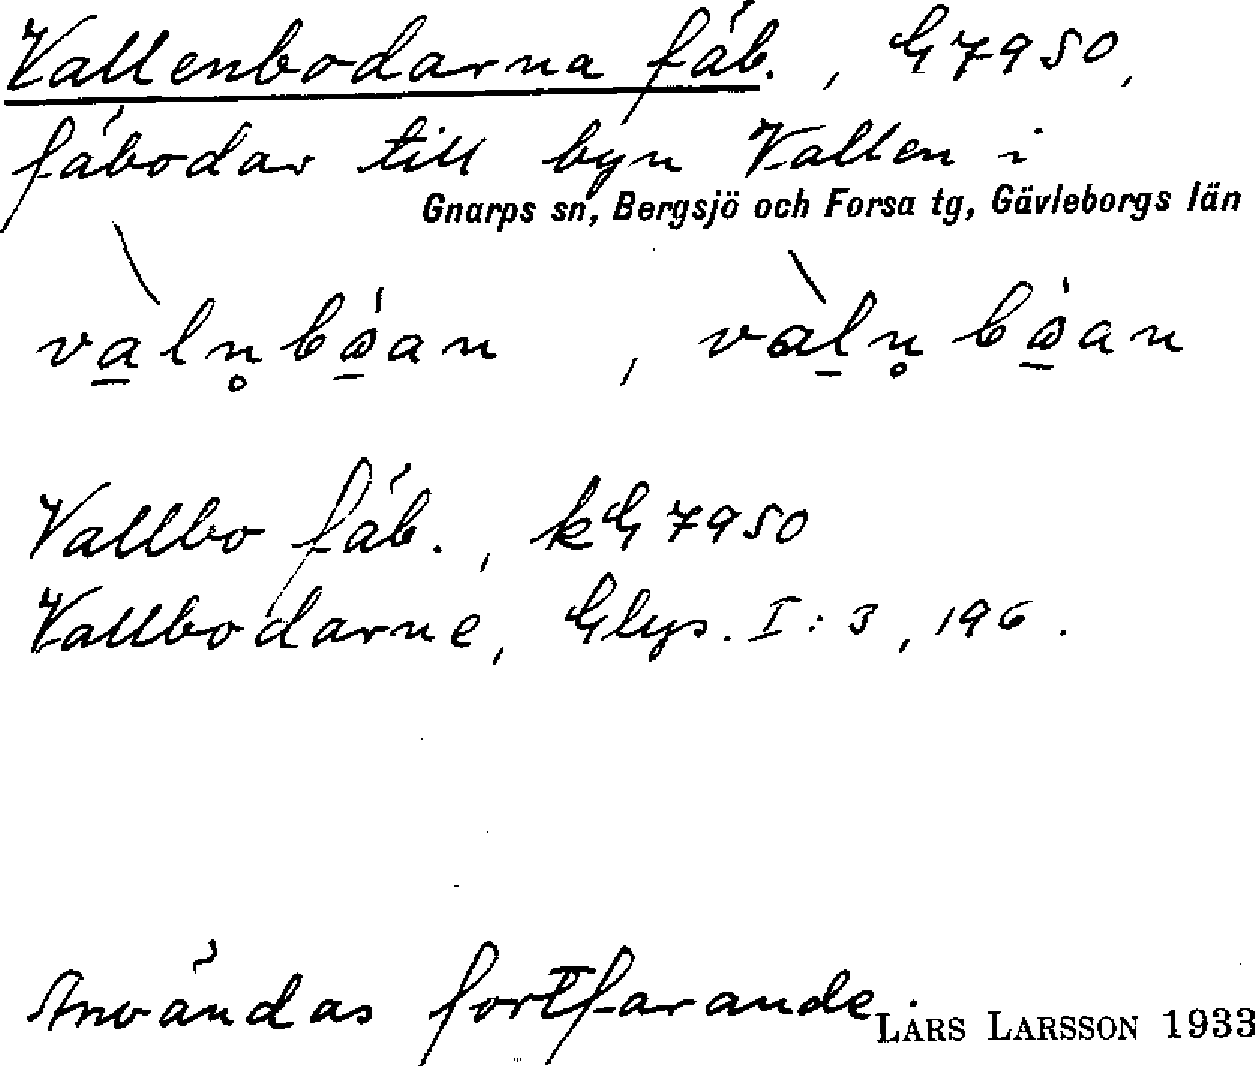 Vallenbodarna fäb., G 7950,
fäbodar till byn Vallen i
Gnarps sn, Bergsjö och Forsa tg, Gävleborgs län
Vallbo fäb., kG 7950
Vallbodarne, Glys. I:3, 196.
Användas fortfarande.
LARS LARSSON 1933